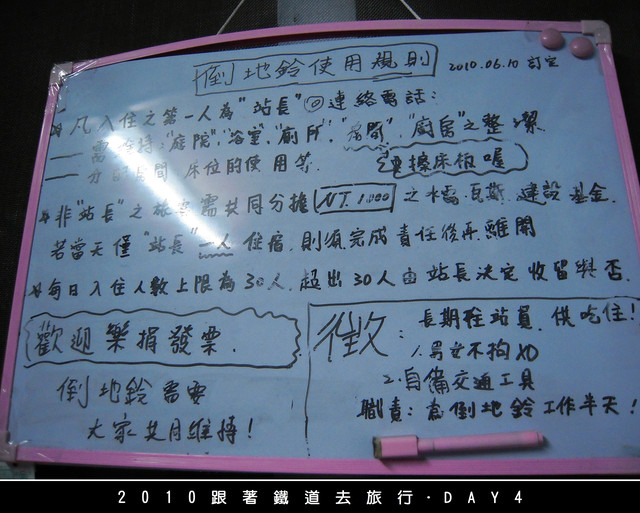 倒地鈴使用規則 2010.06.10 訂定
凡入住之第一人為"站長" 連絡電話:
需 持:"庭院","浴室","廁所","房間","廚房"之整潔
分 間 床位的使用等. 要擦床板喔
*非"站長"之旅客需共同分擔 NT. 100 之水電.瓦斯.建設基金.
若當天僅"站長"一人住宿,則須完成責任後再離開
*每日入住人數上限為30人,超出30人由站長決定收留與否.
歡迎樂捐發票.
倒地鈴需要
大家共同維持!
徵: 長期駐站員,供吃住!
1.男女不拘
2.自備交通工具
職責:為倒地鈴工作半天!
2010跟著鐵道去旅行·DAY4